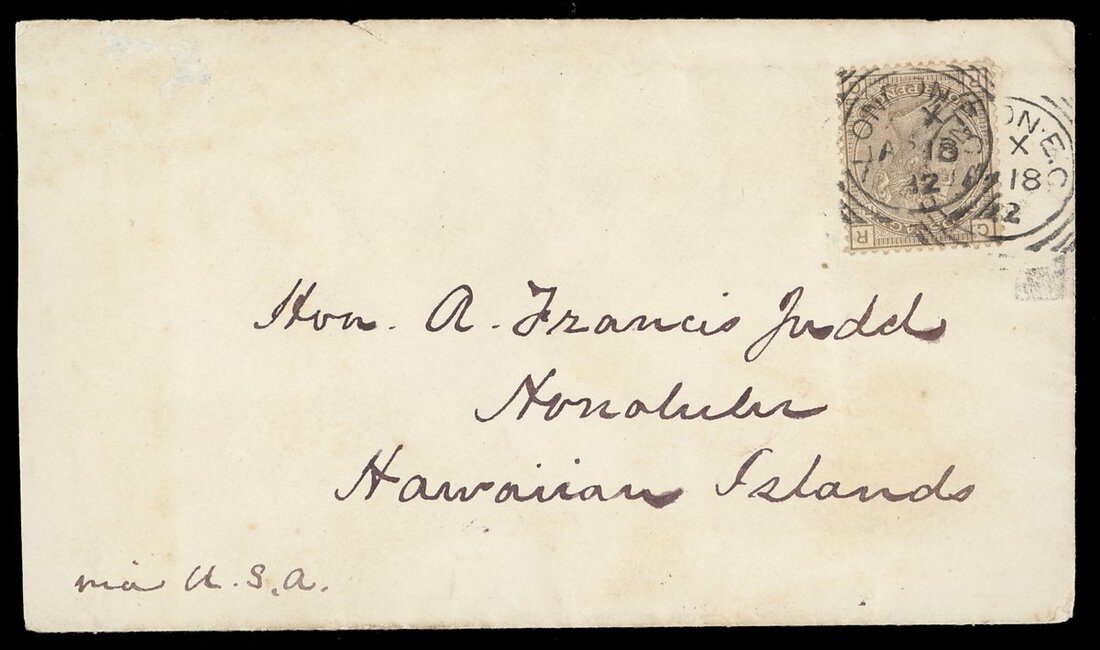 LONDON.E.C
X
JA 18
82
ON.E.C
X
18
2
R
C
R
Hon. A. Francis Judd
Honolulu
Hawaiian Islands
via U.S.A.